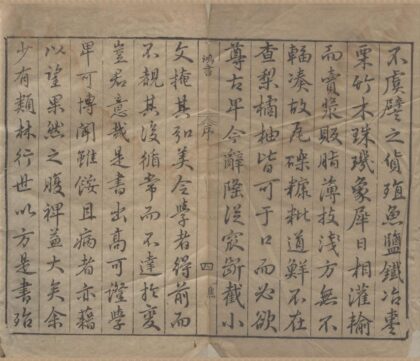 不虞譬之貨殖魚鹽鐵冶棗
栗竹木珠璣象犀日相灌輸
而賣漿販脂薄技淺方無不
輻湊故瓦礫糠粃道鮮不在
查梨橘柚皆可于口而必欲
尊古卑今辭隆從窽斷截小
鴻書 序 四 焦
文掩其弘美令學者得前而
不覩其後循常而不達於變
豈君意哉是書出高可證學
卑可博聞雖餒且病者亦藉
以望果然之腹裨益大矣余
少有類林行世以方是書殆